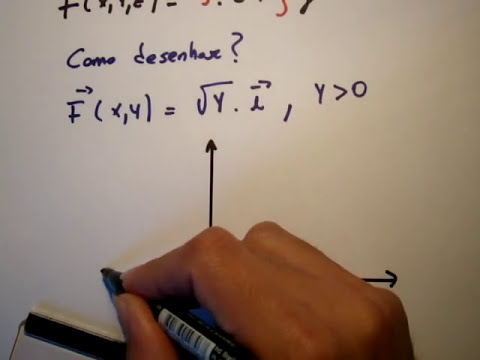 F(x,y,z) =
Como desenhar?
F⃗(x,y) = √y . i⃗ , y>0